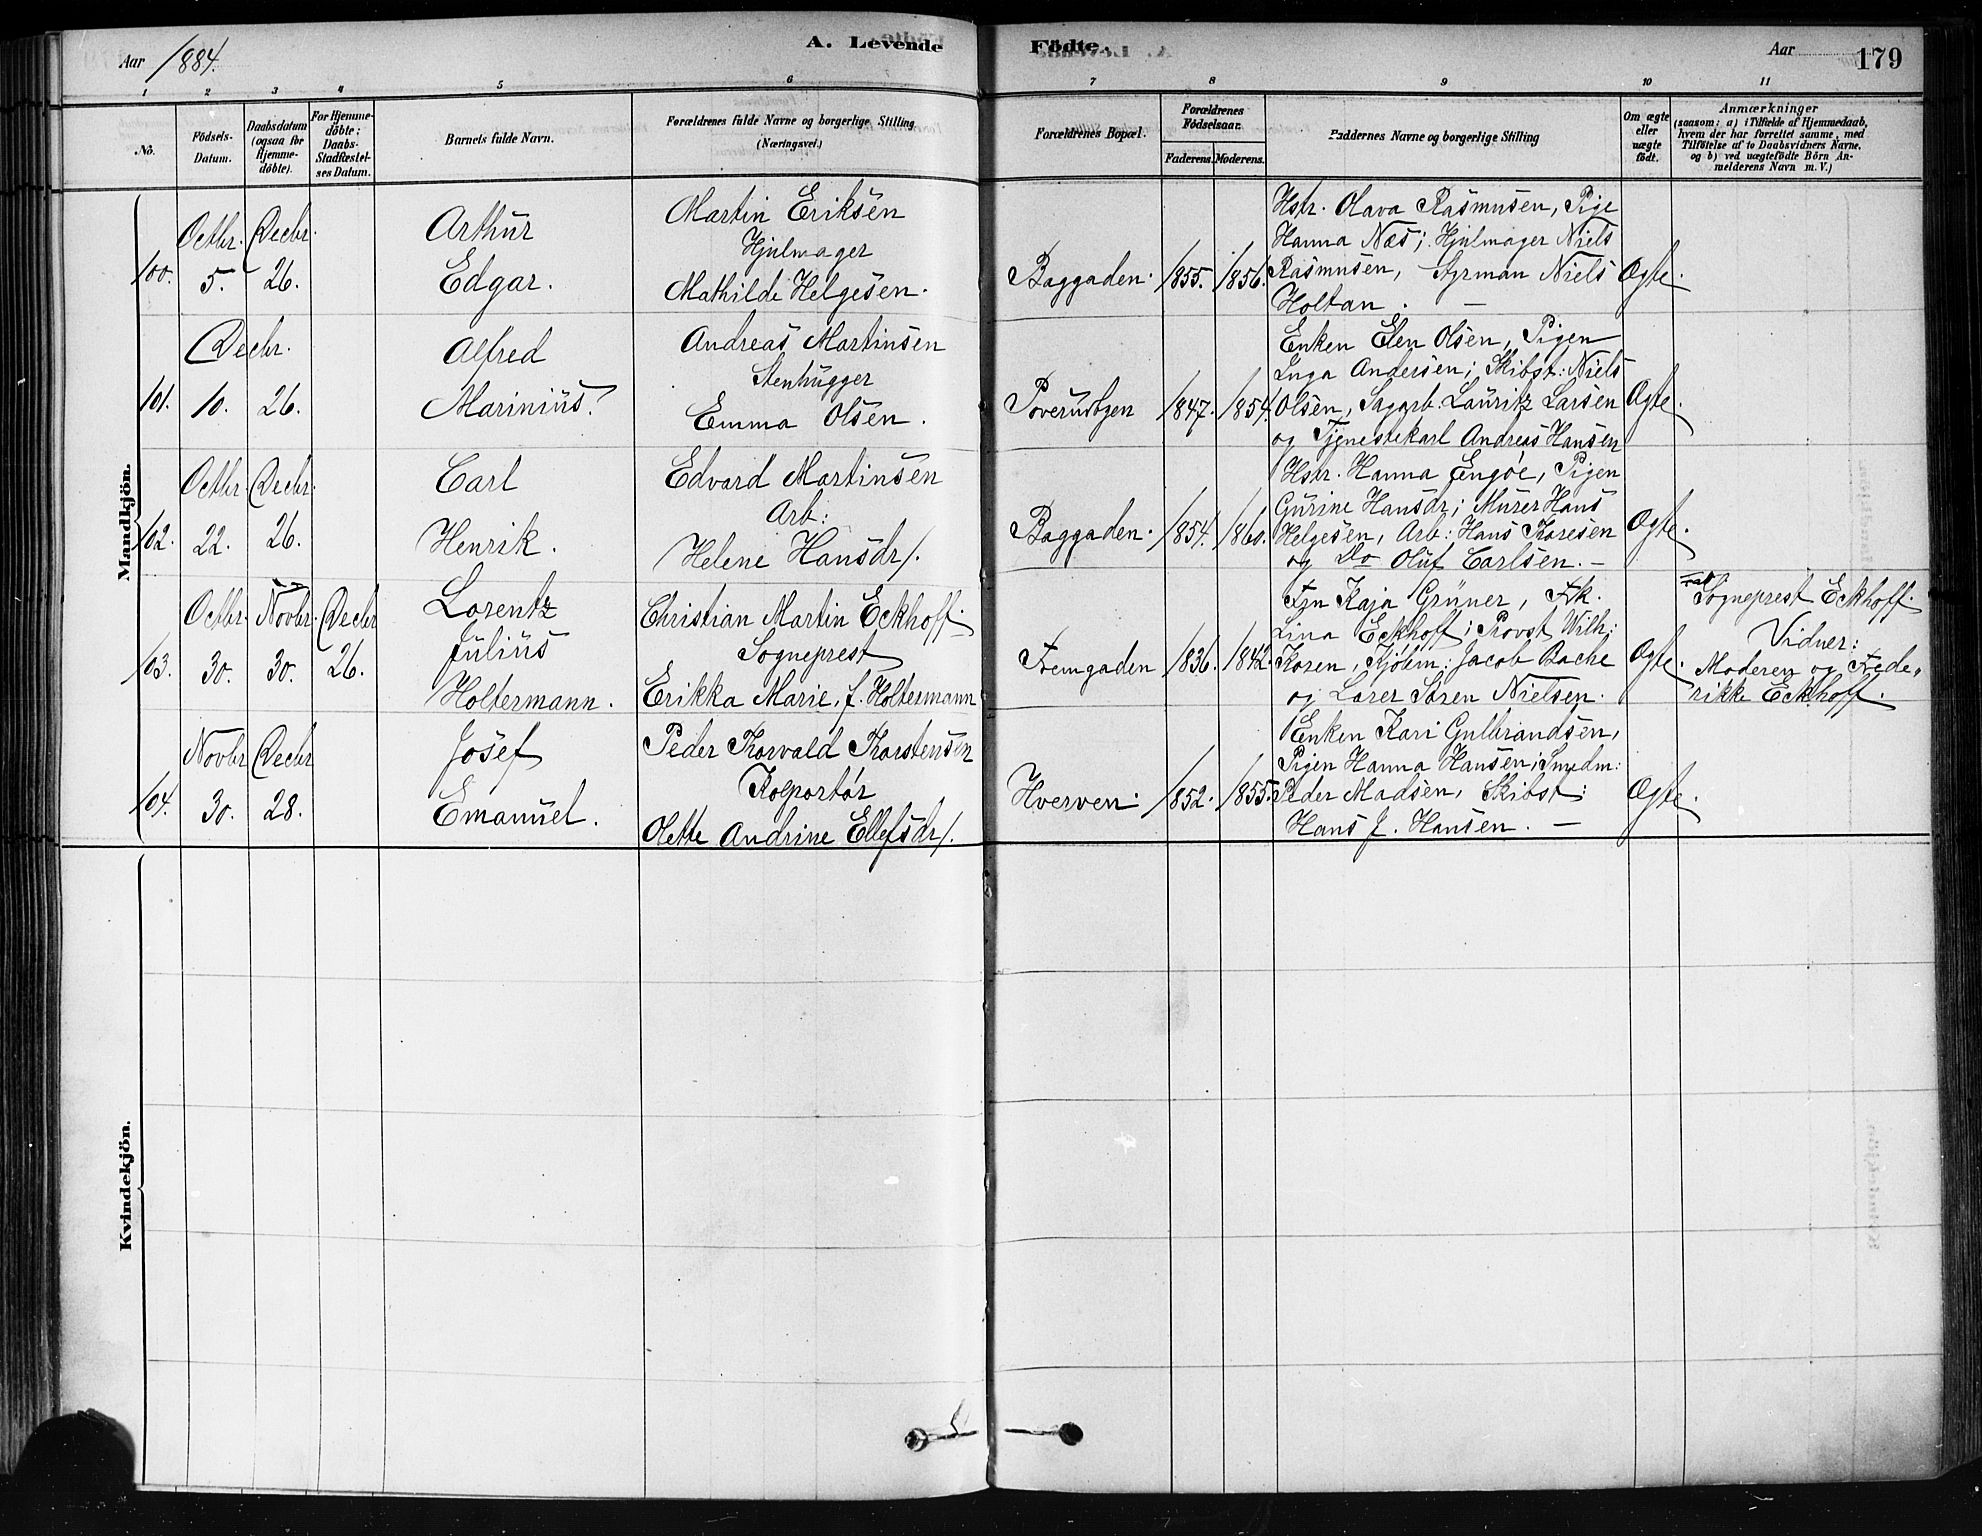 Aar 1884.
A. Levende
Födte.
Aar
179
1 2 3 4 5 6 7 8 9 10 11
No.
Födsels-Datum.
Daabsdatum (ogsaa for Hjemme-döbte).
For Hjemme-döbte; Daabs-Stadfæstel-ses Datum.
Barnets fulde Navn.
Forældrenes fulde Navne og borgerlige Stilling
(Næringsvei.)
Forældrenes Bopæl.
Forældrenes Födselsaar.
Faderens. Moderens.
Faddernes Navne og borgerlige Stilling
Om ægte eller uægte födt.
Anmærkninger
(saasom: a) i Tilfælde af Hjemmedaab,
hvem der har forrettet samme, med
Tilföielse af to Daabsvidners Navne.
og b) ved uægtefödte Börn An-
melderens Navn m. V.)
Mandkjön.
100.
Octbr. 5.
Decbr. 26.
Arthur
Edgar.
Martin Eriksen
Hjulmager
Mathilde Helgesen.
Baggaden.
1855. 1856.
Hstr. Olava Rasmusen, Pige
Hanna Næs; Hjulmager Niels
Rasmusen, Styrman Niels
Holtan. —
Ægte.
101.
Decbr.
10. 26.
Alfred
Marinius.
Andreas Martinsen
Stenhugger
Emma Olsen.
1847. 1854.
Enken Elen Olsen, Pigen
Inga Andersen; Skibst: Niels
Olsen, Sagarb. Lauritz Larsen
og Tjenestekarl Andreas Hansen
Ægte.
102.
Octbr. 22.
Decbr. 26.
Carl
Henrik.
Edvard Martinsen
Arb:
Helene Hansdr/.
Baggaden.
1854. 1860.
Hstr. Hanna Engöe, Pigen
Gurine Hansdr; Murer Hans
Helgesen, Arb: Hans Thoresen
og Do Oluf Carlsen. —
Ægte.
103.
Octbr. 30.
Novbr. 30.
Decbr 26.
Lorentz
Julius
Holtermann.
Christian Martin Eckhoff.
Sogneprest
Erikka Marie, f. Holtermann
Fremgaden
1836. 1842.
Frn Kaja Grüner, Frk.
Lina Eckhoff; Provst Wilh:
Koren, Kjöbm: Jacob Bache
og Lærer Sören Nielsen.
Ægte.
Sogneprest Eckhoff.
Vidner:
Moderen og Frede-
rikke Eckhoff.
104.
Novbr 30.
Decbr 28.
Josef
Emanuel.
Peder Thorvald Thorstensen
Kolportör
Olette Andrine Ellefsdr/.
Hverven.
1852. 1855.
Enken Kari Gulbrandsen,
Pigen Hanna Hansen; Smedm:
Peder Madsen, Skibst:
Hans J. Hansen. —
Ægte.
Kvindekjön.